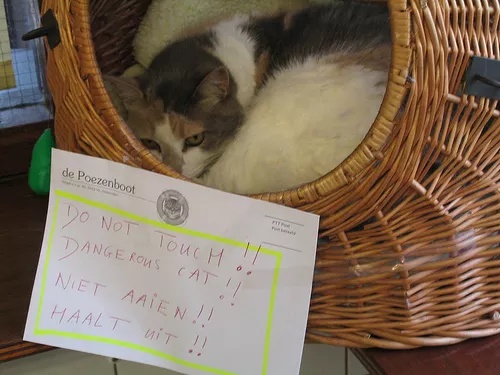 de Poezenboot
DO NOT TOUCH!!
DANGEROUS CAT!!
NIET AAIEN!!
HAALT UIT!!